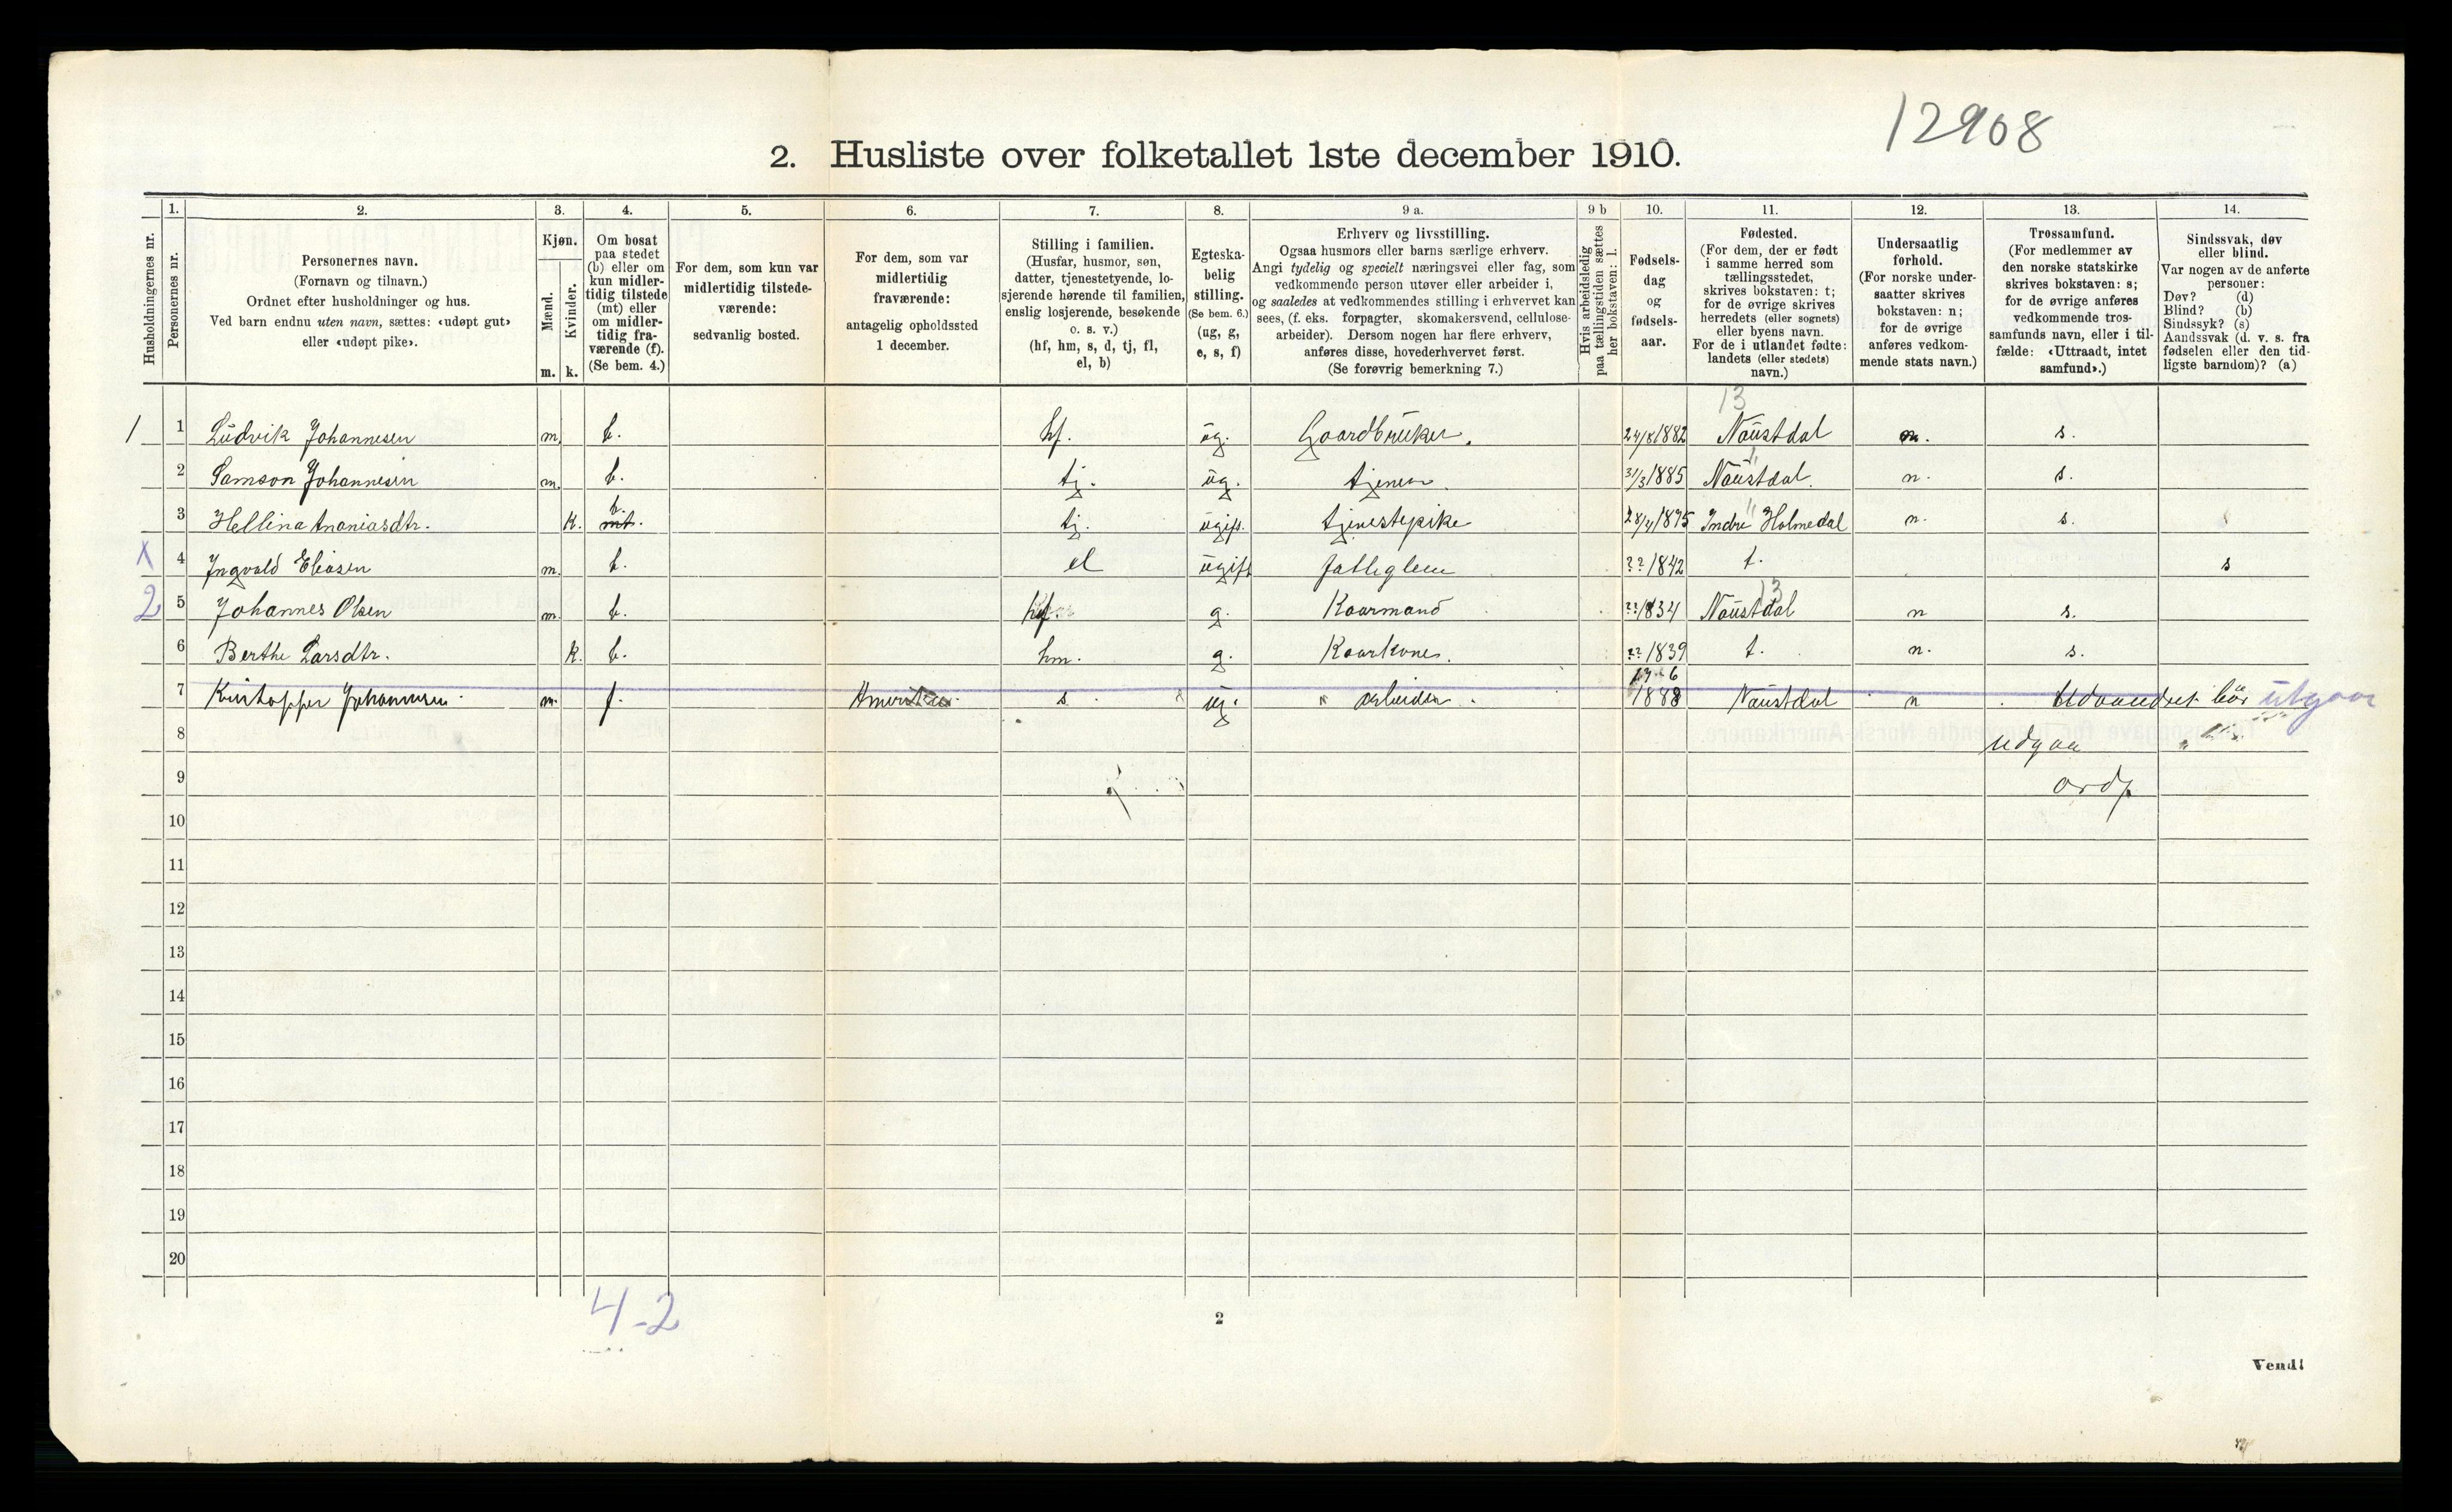 12908
2. Husliste over folketallet 1ste december 1910.
Husholdningernes nr.
1. Personernes nr.
2. Personernes navn.
(Fornavn og tilnavn.)
Ordnet efter husholdninger og hus.
Ved barn endnu uten navn, sættes: «udøpt gut»
eller «udøpt pike».
3. Kjøn.
Mænd. m.
Kvinder. k.
4. Om bosat
paa stedet
(b) eller om
kun midler-
tidig tilstede
(mt) eller
om midler-
tidig fra-
værende (f).
(Se bem. 4.)
5. For dem, som kun var
midlertidig tilstede-
værende:
sedvanlig bosted.
6. For dem, som var
midlertidig
fraværende:
antagelig opholdssted
1 december.
7. Stilling i familien.
(Husfar, husmor, søn,
datter, tjenestetyende, lo-
sjerende hørende til familien,
enslig losjerende, besøkende
o. s. v.)
(hf, hm, s, d, tj, fl,
el, b)
8. Egteska-
belig
stilling.
(Se bem. 6.)
(ug, g,
e, s, f)
9 a. Erhverv og livsstilling.
Ogsaa husmors eller barns særlige erhverv.
Angi tydelig og specielt næringsvei eller fag, som
vedkommende person utøver eller arbeider i,
og saaledes at vedkommendes stilling i erhvervet kan
sees, (f. eks. forpagter, skomakersvend, cellulose-
arbeider). Dersom nogen har flere erhverv,
anføres disse, hovederhvervet først.
(Se forøvrig bemerkning 7.)
9 b Hvis arbeidsledig
paa tællingstiden sættes
her bokstaven: l.
10. Fødsels-
dag
og
fødsels-
aar.
11. Fødested.
(For dem, der er født
i samme herred som
tællingsstedet,
skrives bokstaven: t;
for de øvrige skrives
herredets (eller sognets)
eller byens navn.
For de i utlandet fødte:
landets (eller stedets)
navn.)
12. Undersaatlig
forhold.
(For norske under-
saatter skrives
bokstaven: n;
for de øvrige
anføres vedkom-
mende stats navn.)
13. Trossamfund.
(For medlemmer av
den norske statskirke
skrives bokstaven: s;
for de øvrige anføres
vedkommende tros-
samfunds navn, eller i til-
fælde: «Uttraadt, intet
samfund».)
14. Sindssvak, døv
eller blind.
Var nogen av de anførte
personer:
Døv? (d)
Blind? (b)
Sindssyk? (s)
Aandssvak (d. v. s. fra
fødselen eller den tid-
ligste barndom)? (a)
13
1 1 Ludvik Johannesen m. b. hf. ug. Gaardbruker. 24/8 1882 Naustdal n. s.
2 Samson Johannesen m. b. tj. ug. tjener. 31/3 1885 Naustdal. n. s.
b.
3 Hellina Ananiasdtr. k. mt. tj. ugift. tjenestepike 28/4 1895 Indre Holmedal n. s.
X 4 Ingvald Eliasen m. b. el ugift ?? 1842 t. s
13
2 5 Johannes Olsen m. b. hf. g. Kaarmand ?? 1834 Naustdal n s.
6 Berthe Larsdtr. k. b. hm. g. Kaarkone. ?? 1839 t. n. s.
7 Johannesen m. f. Amerika s ug. arbeider. 1888 Naustdal n bør utgaa
8 udgaa
9
10
11
12
13
14
15
16
17
18
19
20
4-2
2
Vend!